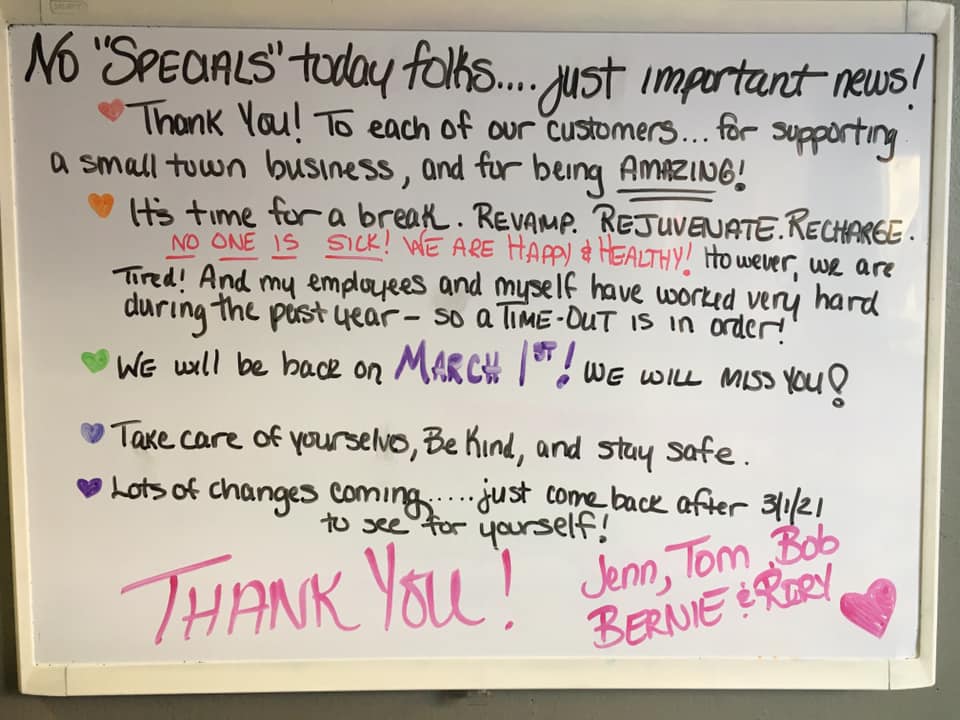 No "SPECIALS" today folks.... just important news!
Thank You! To each of our customers... for supporting
a small town business, and for being AMAZING!
It's time for a break. REVAMP. REJUVENATE. RECHARGE.
NO ONE IS SICK! WE ARE HAPPY & HEALTHY! However, we are
Tired! And my employees and myself have worked very hard
during the past year - so a TIME-OUT IS in order!
WE will be back on MARCH 1ST! WE WILL MISS YOU!
Take care of yourselvs, Be Kind, and stay safe.
Lots of changes coming..... just come back after 3/1/21
to see for yourself!
THANK YOU!
Jenn, Tom, Bob
BERNIE & RORY